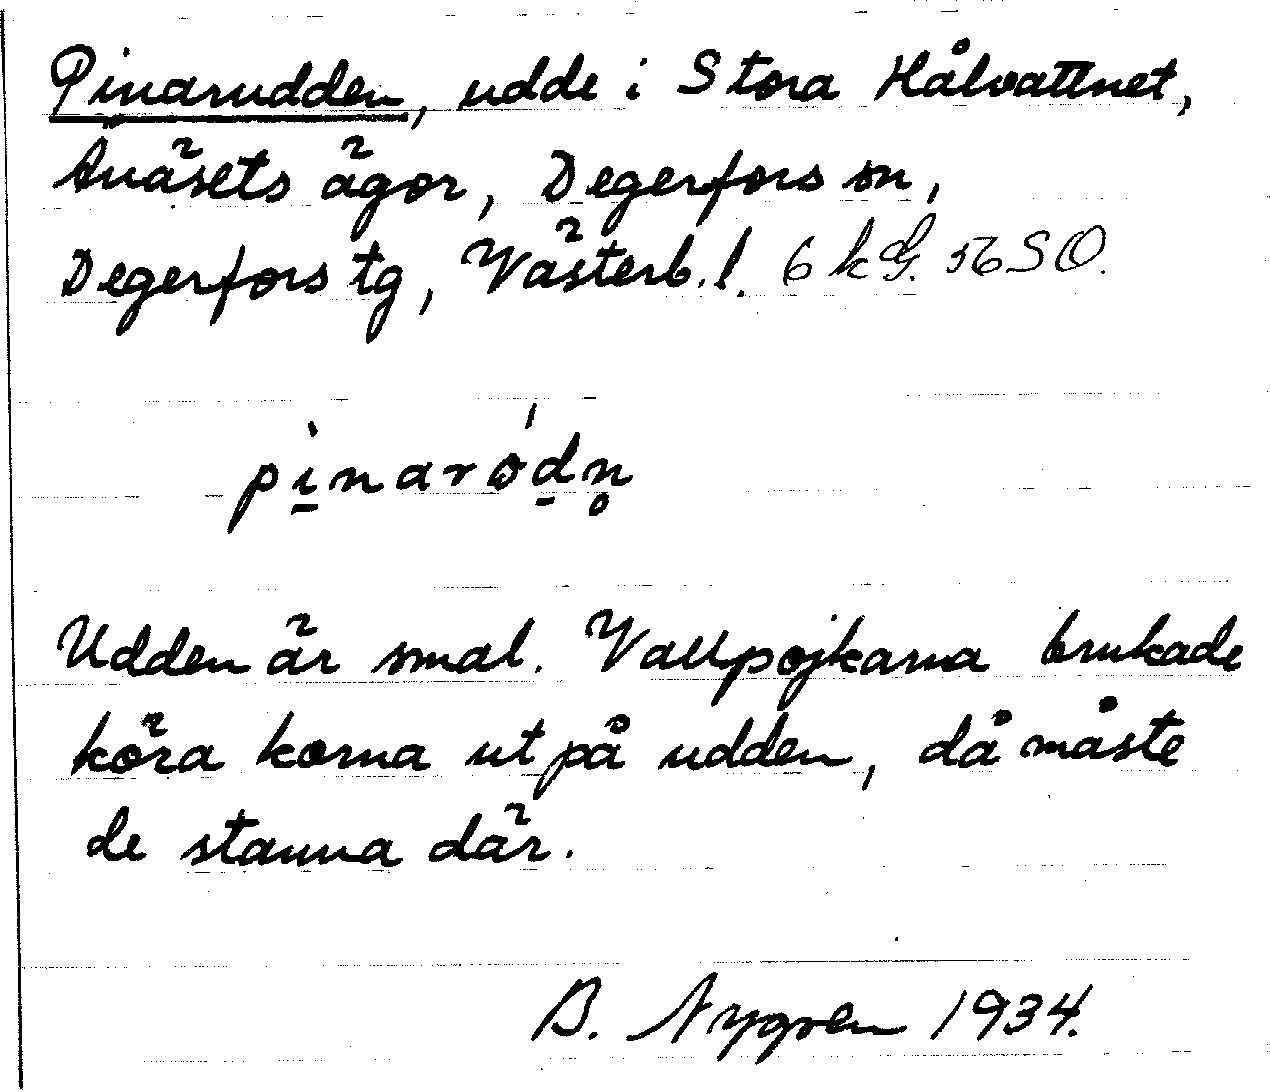 Pinarudden, udde i Stora Hålvattnet,
Ånäsets ägor, Degerfors sn,
Degerfors tg, Västerb. l. 6 kG. 56SO.
pi̱naród̠n̥
Udden är smal. Vallpojkarna brukade
köra korna ut på udden, då måste
de stanna där.
B. Nygren 1934.